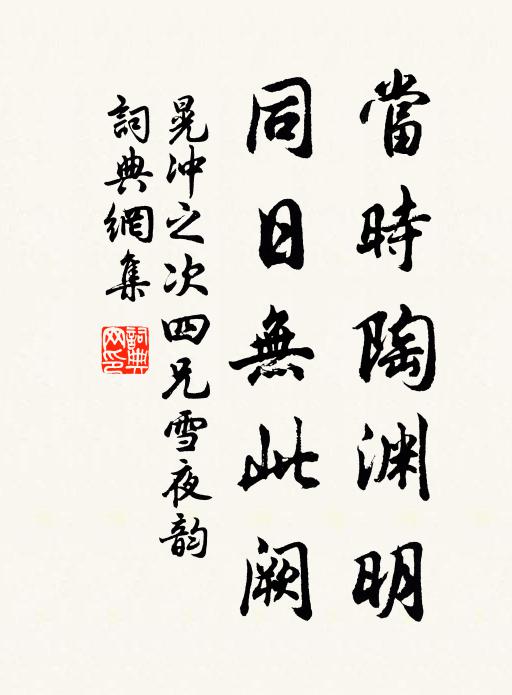 當時陶渊明
同日無此阙
晃冲之次四兄雪夜韵
詞典網集
詞典網印